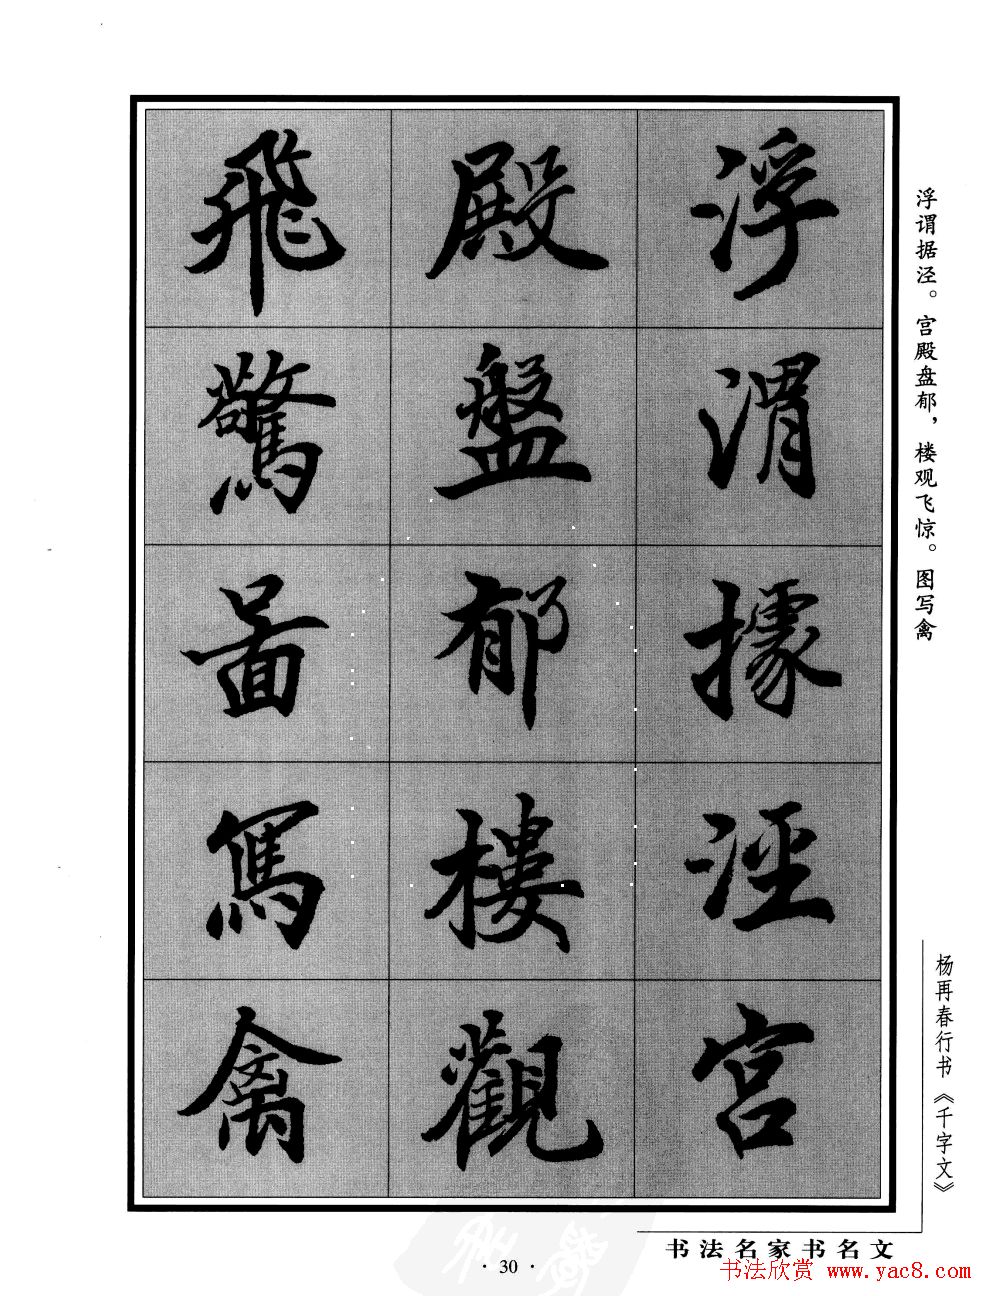 浮渭據涇宫
殿盤郁樓觀
飛驚圖寫禽
浮谓据泾。宫殿盘郁，楼观飞惊。图写禽
杨再春行书《千字文》
书法名家书名文
· 30 ·
书法欣赏 www.yac8.com